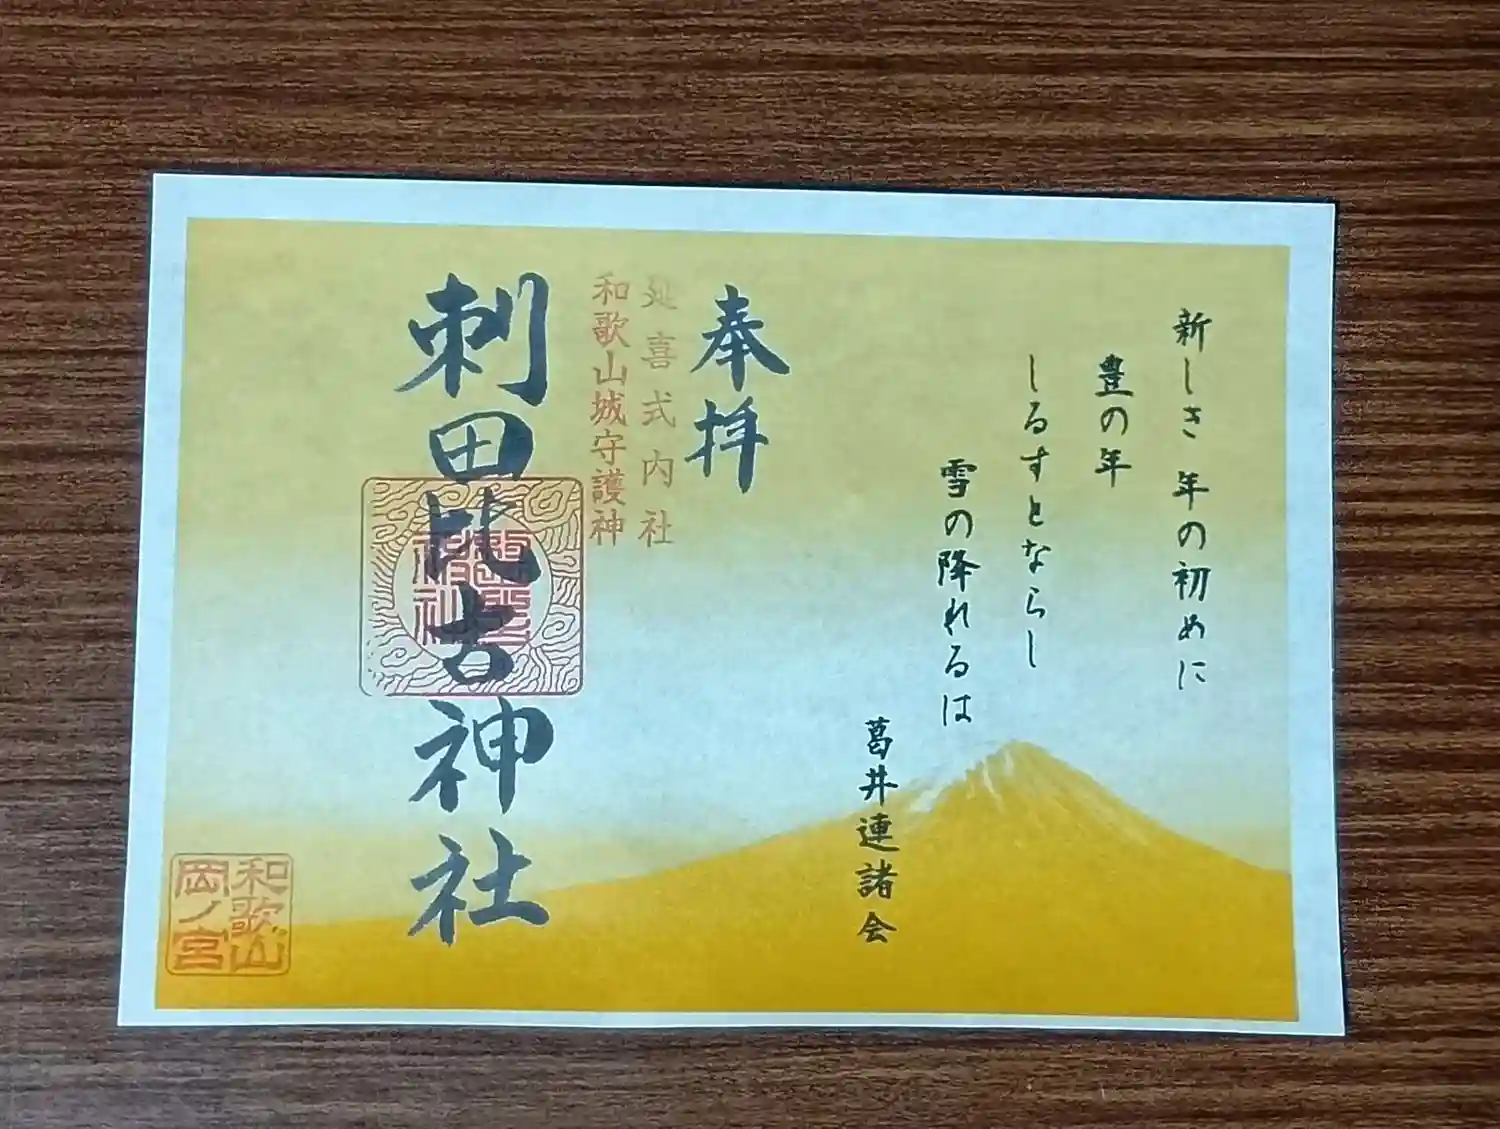 新しき年の初めに
豊の年
しるすとならし
雪の降れるは
葛井連諸会
奉拝
延喜式内社
和歌山城守護神
刺田比古神社
和歌山
岡ノ宮